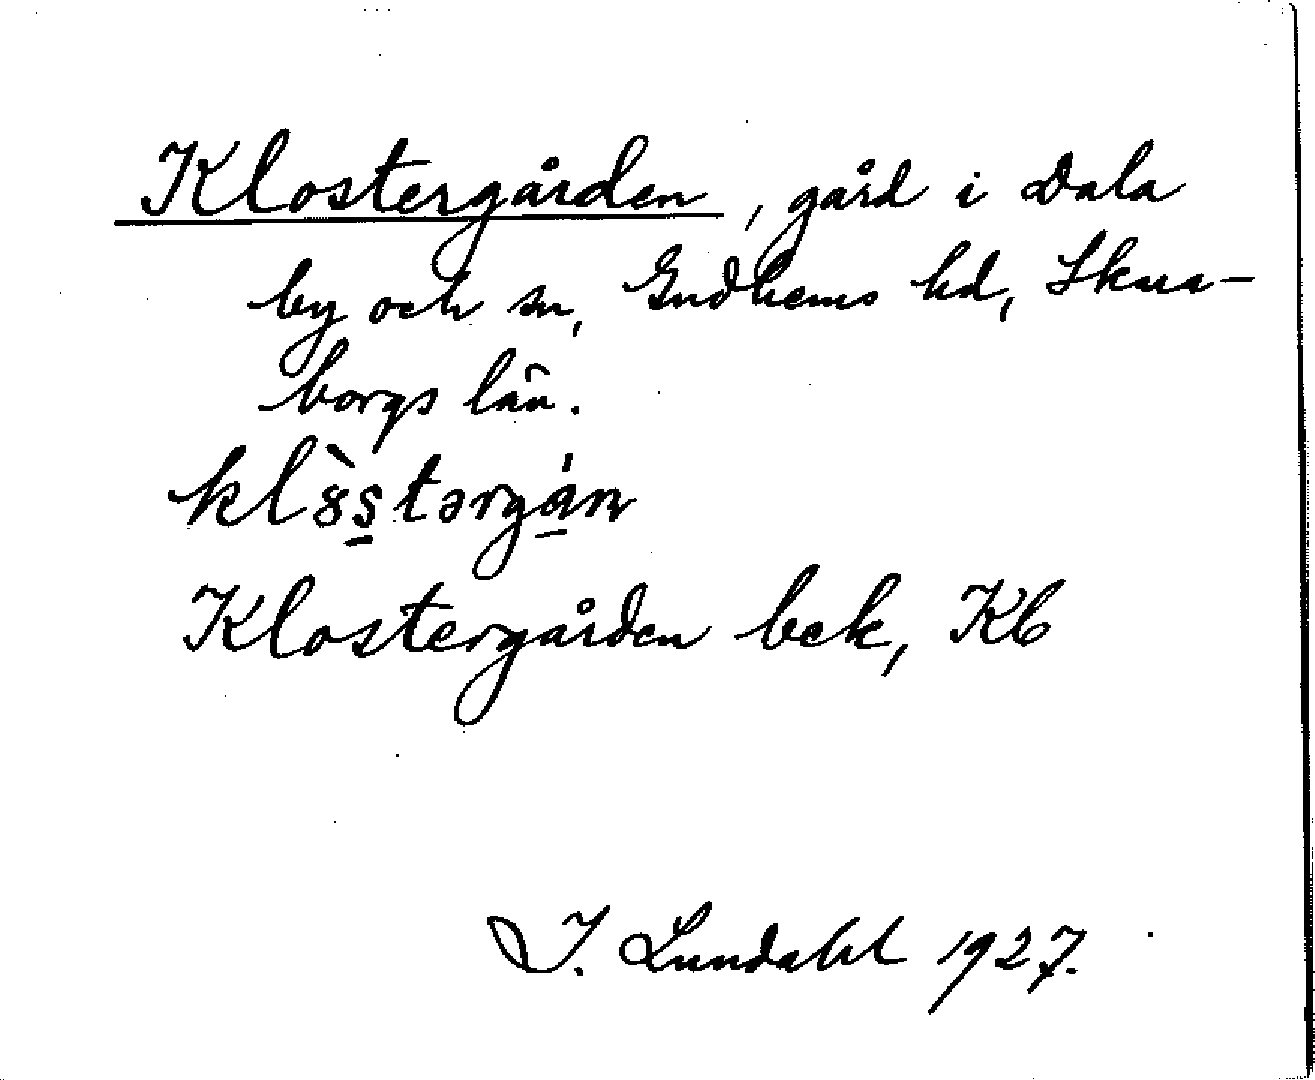 Klostergården, gård i Dala
by och sn, Gudhems hd, Skara-
borgs län.
kl8̀s̲tərgá̲n
Klostergården bek, Kb
I. Lundahl 1927.